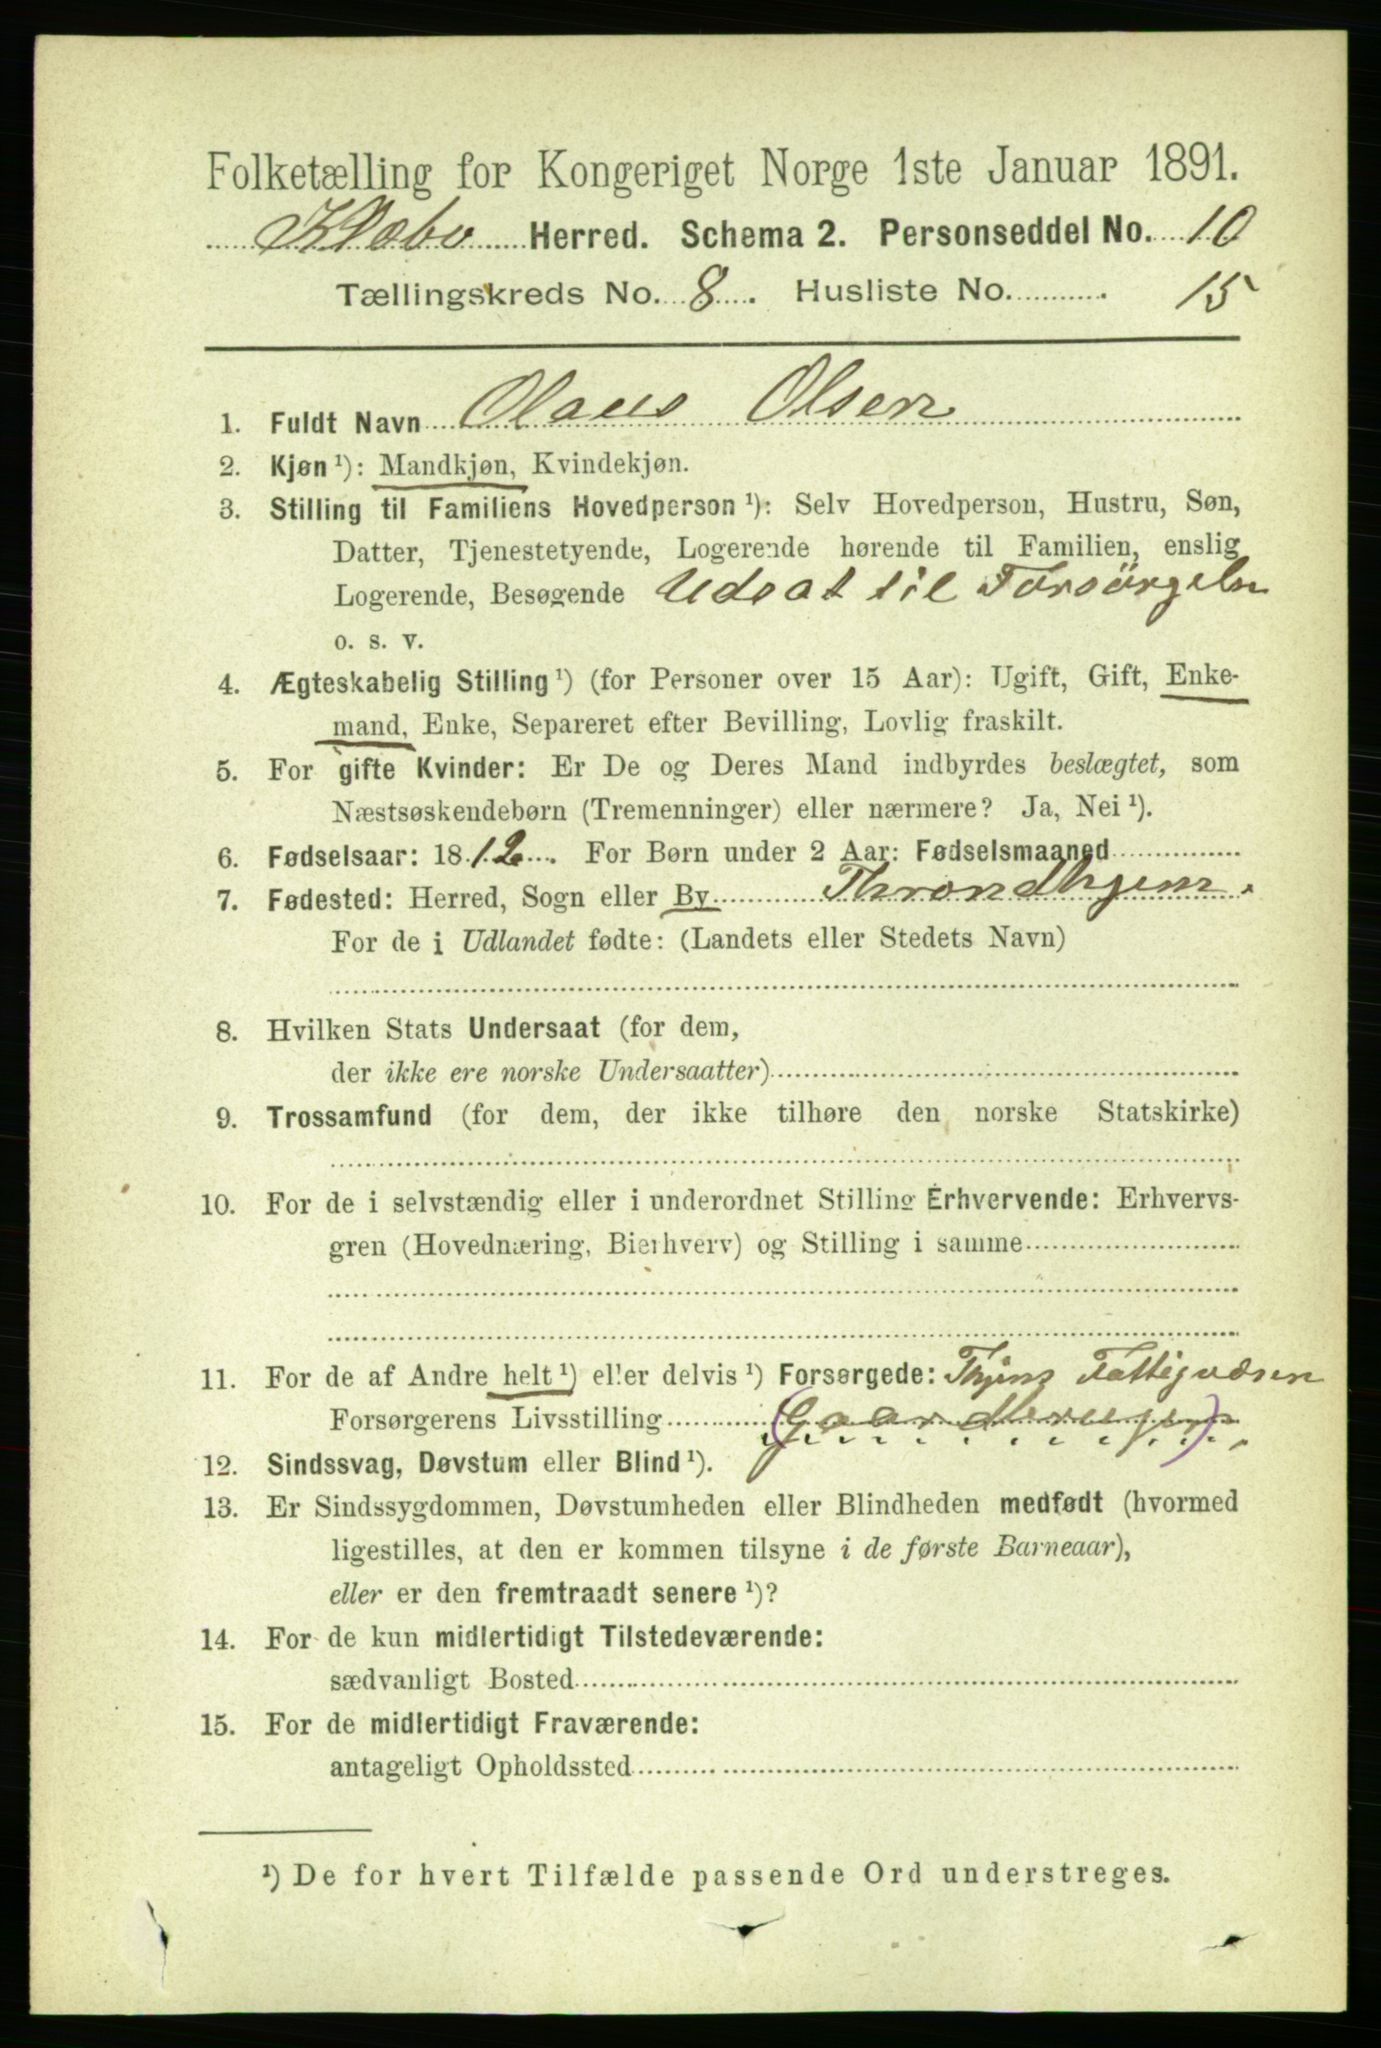 Folketælling for Kongeriget Norge 1ste Januar 1891.
Klæbo Herred. Schema 2. Personseddel No. 10
Tællingskreds No. 8. Husliste No. 15
1. Fuldt Navn Olaus Olsen
2. Kjøn ¹): Mandkjøn, Kvindekjøn.
3. Stilling til Familiens Hovedperson ¹): Selv Hovedperson, Hustru, Søn,
Datter, Tjenestetyende, Logerende hørende til Familien, enslig
Logerende, Besøgende Udsat til Forsörgelse
o. s. v.
4. Ægteskabelig Stilling ¹) (for Personer over 15 Aar): Ugift, Gift, Enke-
mand, Enke, Separeret efter Bevilling, Lovlig fraskilt.
5. For gifte Kvinder: Er De og Deres Mand indbyrdes beslægtet, som
Næstsøskendebørn (Tremenninger) eller nærmere? Ja, Nei ¹).
6. Fødselsaar: 1812. For Børn under 2 Aar: Fødselsmaaned
7. Fødested: Herred, Sogn eller By Throndhjem.
For de i Udlandet fødte: (Landets eller Stedets Navn)
8. Hvilken Stats Undersaat (for dem,
der ikke ere norske Undersaatter)
9. Trossamfund (for dem, der ikke tilhøre den norske Statskirke)
10. For de i selvstændig eller i underordnet Stilling Erhvervende: Erhvervs-
gren (Hovednæring, Bierhverv) og Stilling i samme
11. For de af Andre helt ¹) eller delvis ¹) Forsørgede: Thjems Fattigvæsen
Forsørgerens Livsstilling (Gaardbruger)
12. Sindssvag, Døvstum eller Blind ¹).
13. Er Sindssygdommen, Døvstumheden eller Blindheden medfødt (hvormed
ligestilles, at den er kommen tilsyne i de første Barneaar),
eller er den fremtraadt senere ¹)?
14. For de kun midlertidigt Tilstedeværende:
sædvanligt Bosted
15. For de midlertidigt Fraværende:
antageligt Opholdssted
¹) De for hvert Tilfælde passende Ord understreges.